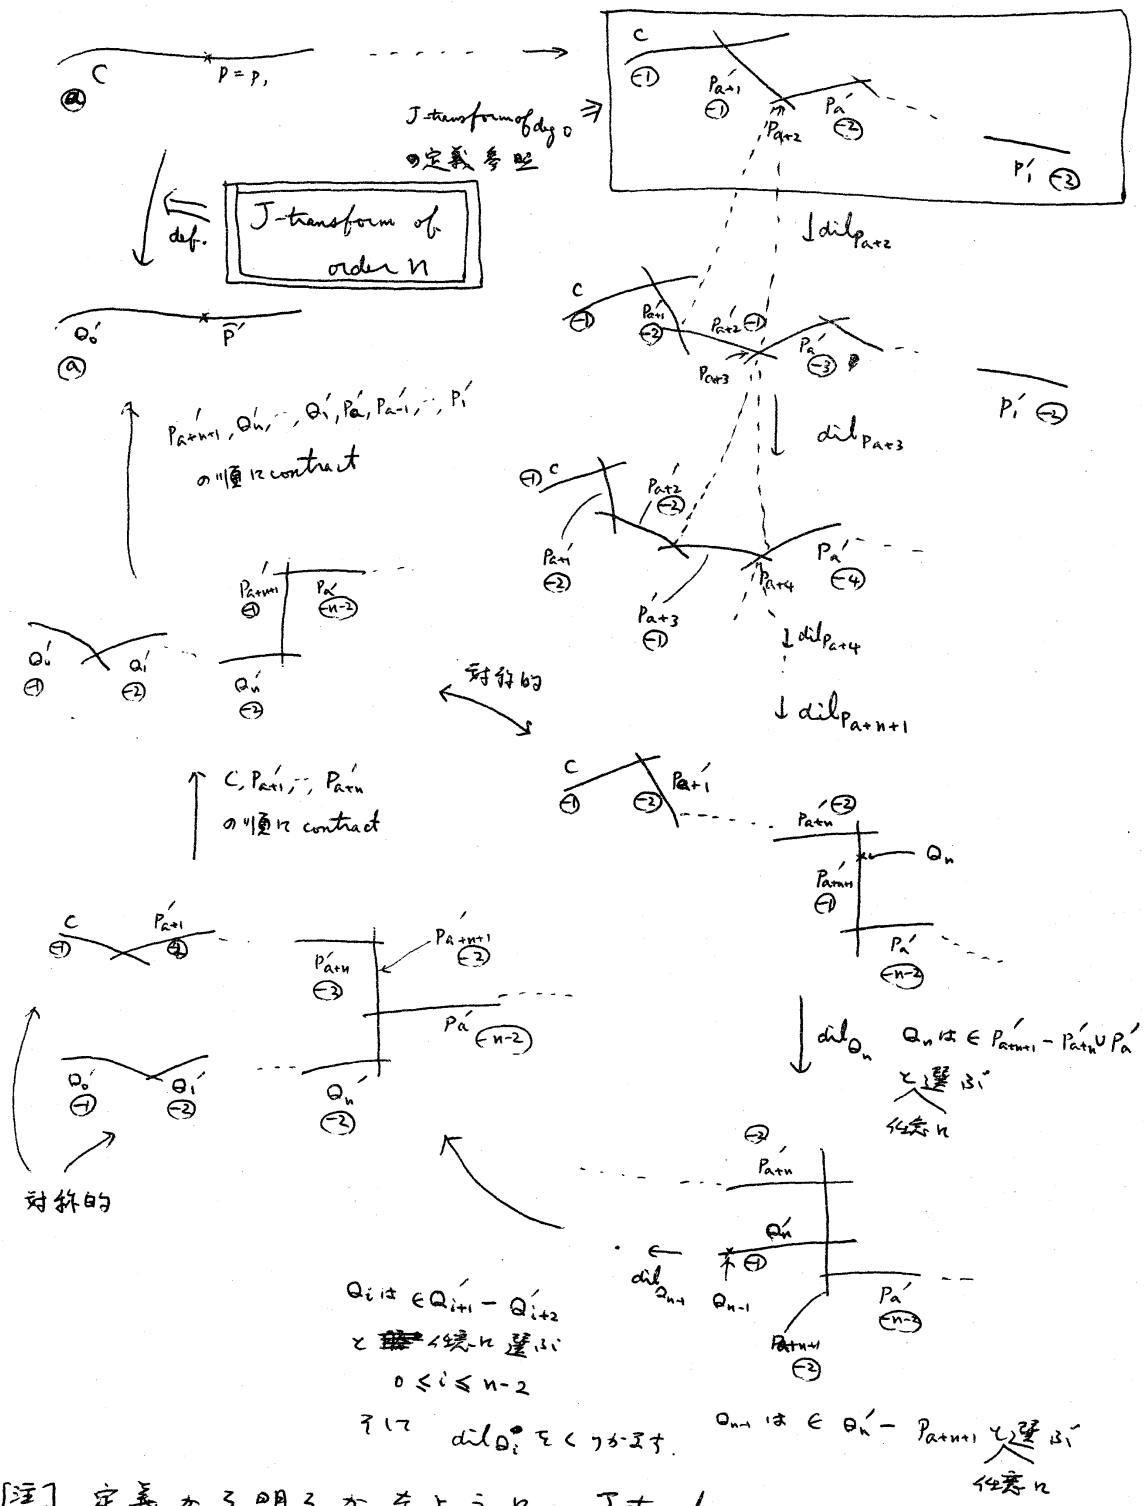 C
P = P₁
ⓐ
J-transform of deg 0
の定義参照
C
-1
P'a+1
-1
Pa+2
Pa'
-2
P₁'
-2
def.
J-transform of
order n
↓ dil Pa+2
Q₀'
P̃'
ⓐ
C
-1
P'a+1
-2
P'a+2
-1
Pa+3
Pa'
-3
P₁'
-2
P'a+n+1, Q'n, ..., Q₁', Pa', P'a-1, ..., P₁'
の順に contract
dil Pa+3
-1
C
P'a+2
-2
P'a+1
-2
P'a+3
-1
Pa+4
Pa'
-4
↓ dil Pa+4
P'a+n+1
-1
Pa'
-n-2
Q₀'
-1
Q₁'
-2
Qn'
-2
対称的
↓ dil Pa+n+1
C, P'a+1, ..., P'a+n
の順に contract
C
-1
P'a+1
-2
P'a+n
-2
Qn
P'a+n+1
-1
Pa'
-n-2
C
-1
P'a+1
-2
P'a+n
-2
P'a+n+1
-2
Pa'
-n-2
Q₀'
-1
Q₁'
-2
Qn'
-2
対称的
dil Qn
Qn は ∈ P'a+n+1 - P'a+n ∪ Pa'
と選ぶ
任意に
-2
P'a+n
Qn'
-1
dil Qn-1
Qn-1
Pa'
-n-2
Pa+n+1
-2
Qi は ∈ Q'i+1 - Q'i+2
と任意に選ぶ
0 ≤ i ≤ n-2
そして dil Qi をくりかえす.
Qn-1 は ∈ Qn' - Pa+n+1 と選ぶ
任意に
[注] 定義から明らかなように、J-t